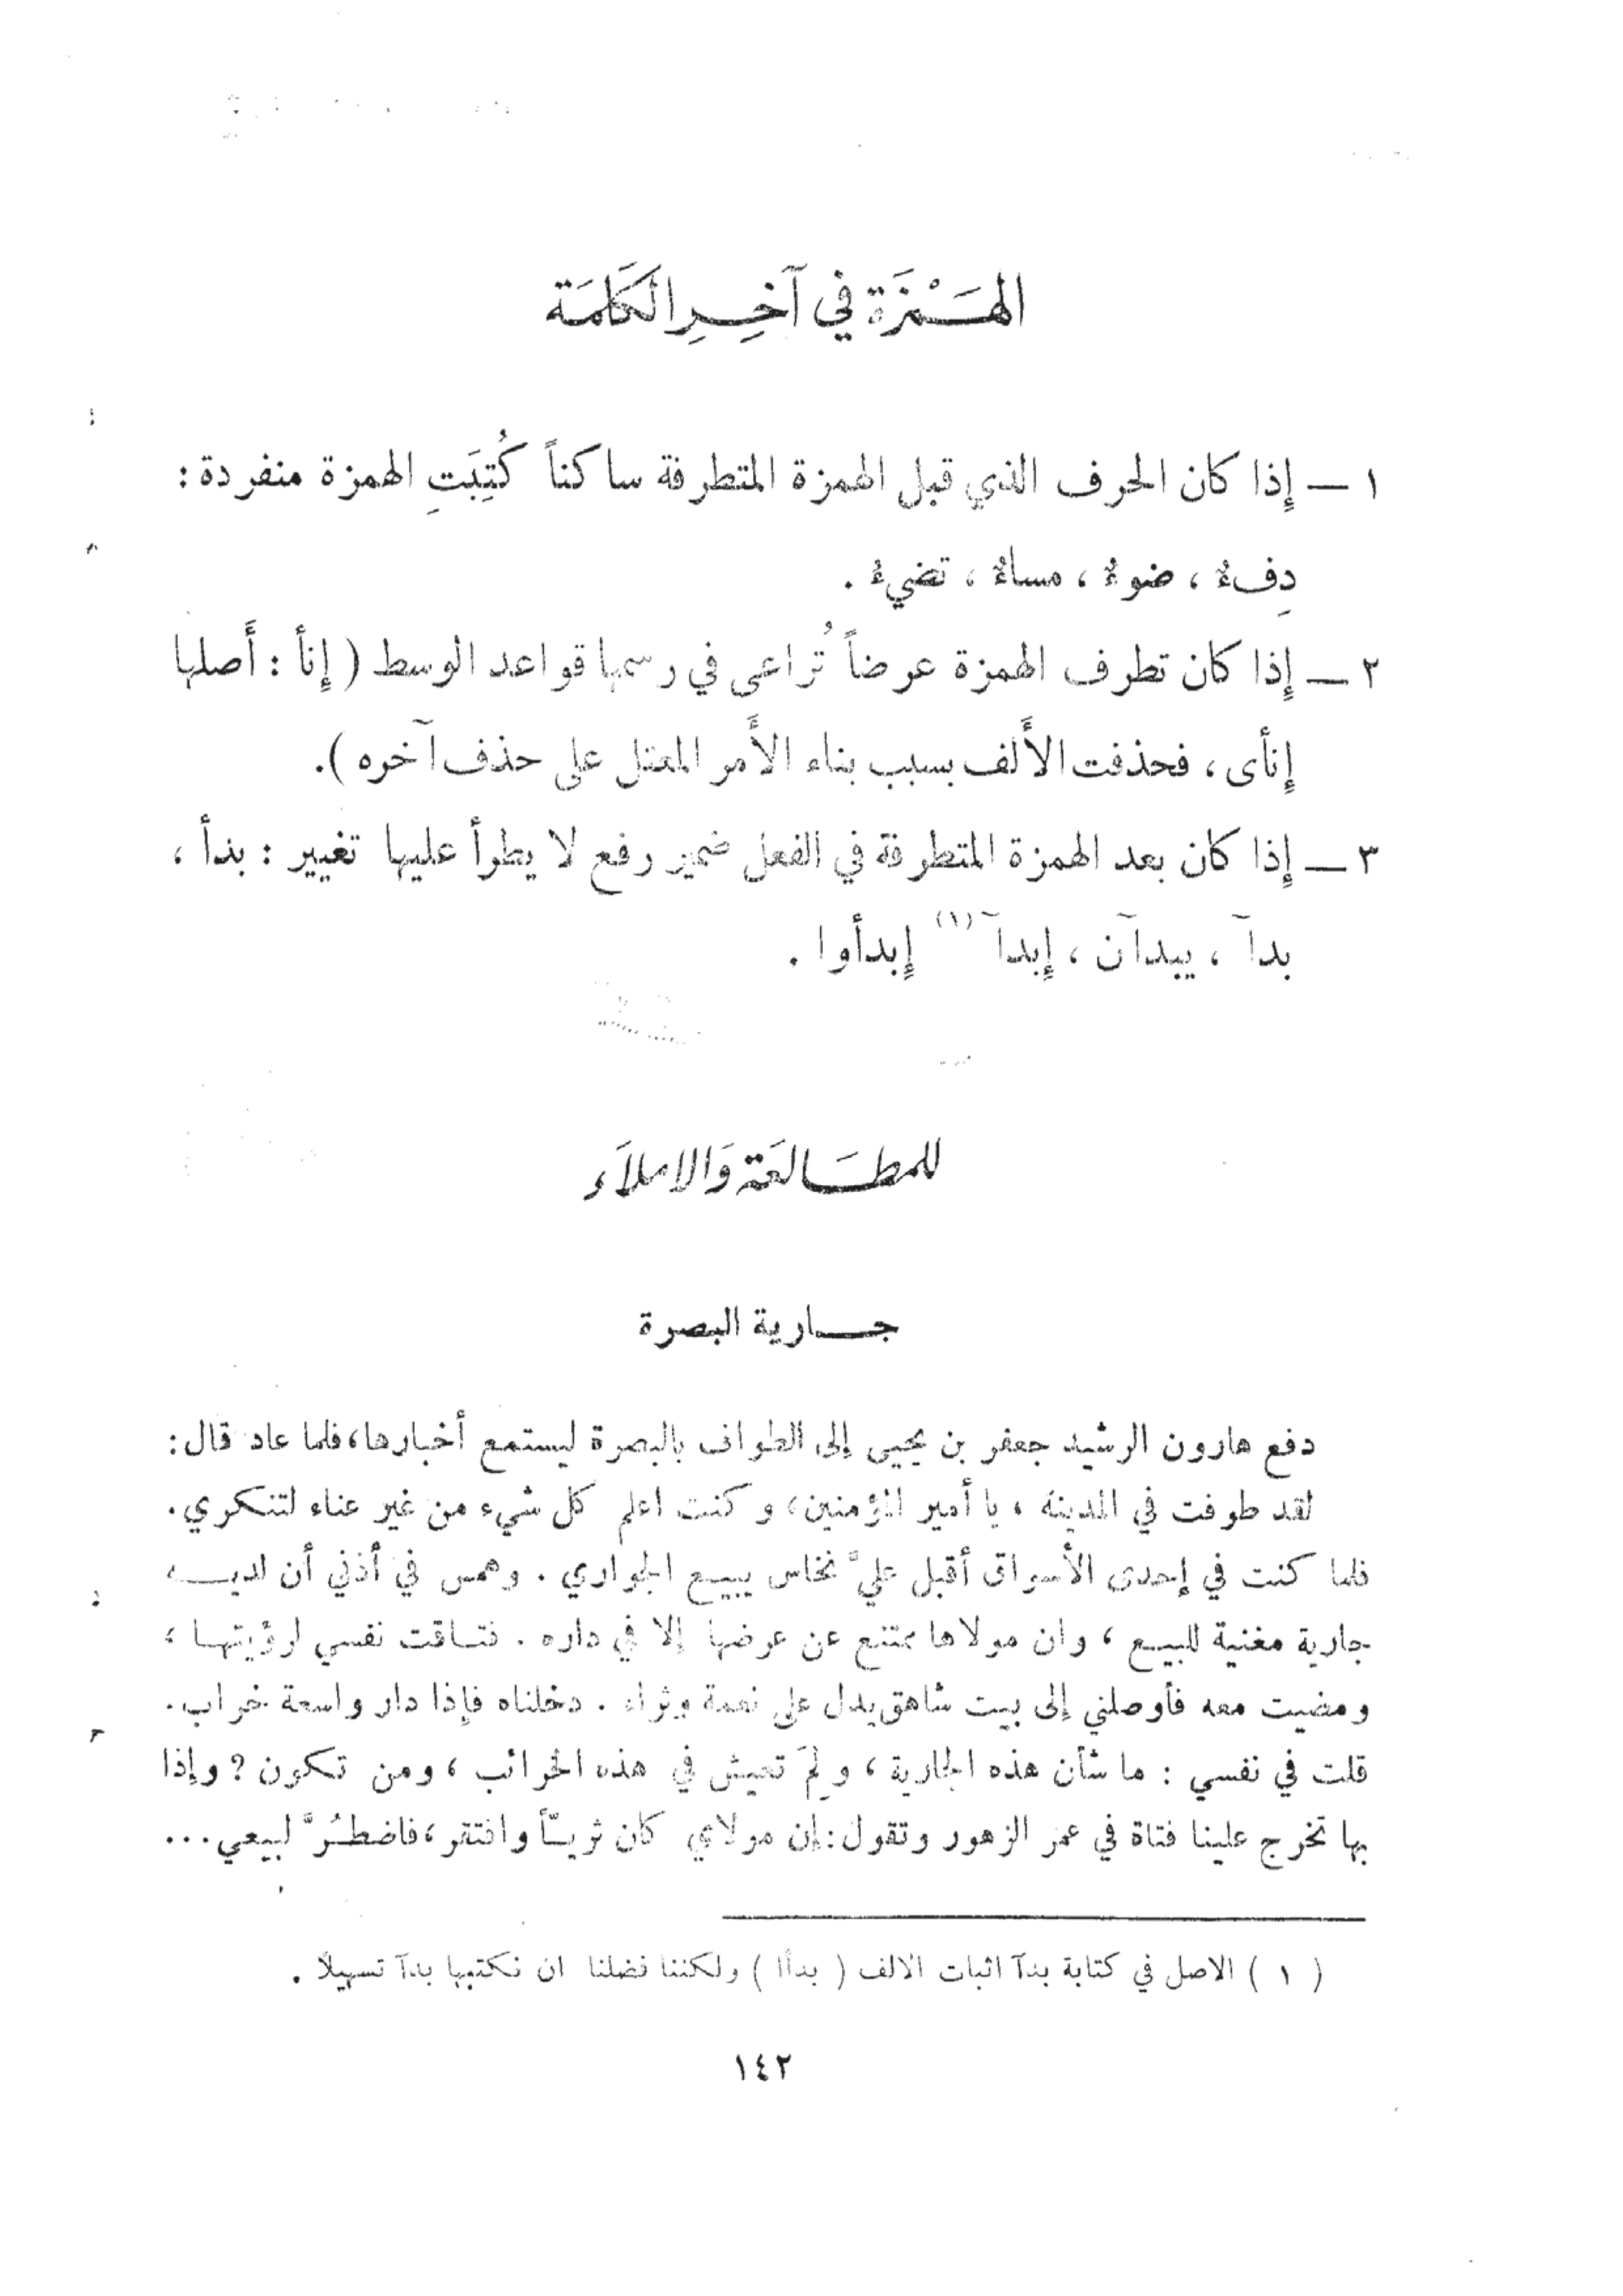 الهَمْزَة في آخِرِ الكَلِمَة
١ — إِذا كان الحرف الذي قبل الهمزة المتطرفة ساكناً كُتِبَتِ الهمزة منفردة :
دِفءٌ ، ضوءٌ ، مساءٌ ، تضيءُ .
٢ — إِذا كان تطرف الهمزة عرضاً تُراعى في رسمها قواعد الوسط ( إِنأ : أَصلها
إِنأى ، فحذفت الأَلف بسبب بناء الأَمر المعتل على حذف آخره ).
٣ — إِذا كان بعد الهمزة المتطرفة في الفعل ضمير رفع لا يطرأ عليها تغيير : بدأ ،
بدآ ، يبدآن ، إِبدآ (١) إِبدأوا .
للمطَالعَة وَالاملاَء
جارية البصرة
دفع هارون الرشيد جعفر بن يحيى إلى الطواف بالبصرة ليستمع أخبارها ، فلما عاد قال :
لقد طوفت في المدينة ، يا أمير المؤمنين ، وكنت اعلم كل شيء من غير عناء لتنكري .
فلما كنت في إحدى الأسواق أقبل عليَّ نخاس يبيع الجواري . وهمس في أذني أن لديه
جارية مغنية للبيع ، وان مولاها ممتنع عن عرضها إلا في داره . فتاقت نفسي لرؤيتها ،
ومضيت معه فأوصلني إلى بيت شاهق يدل على نعمة وثراء . دخلناه فإذا دار واسعة خراب .
قلت في نفسي : ما شأن هذه الجارية ، ولِمَ تعيش في هذه الخرائب ، ومن تكون ؟ وإذا
بها تخرج علينا فتاة في عمر الزهور وتقول : إن مولاي كان ثريّاً وافتقر ، فاضطُرَّ لبيعي ...
( ١ ) الاصل في كتابة بدآ اثبات الالف ( بدأا ) ولكننا فضلنا ان نكتبها بدآ تسهيلاً .
١٤٢